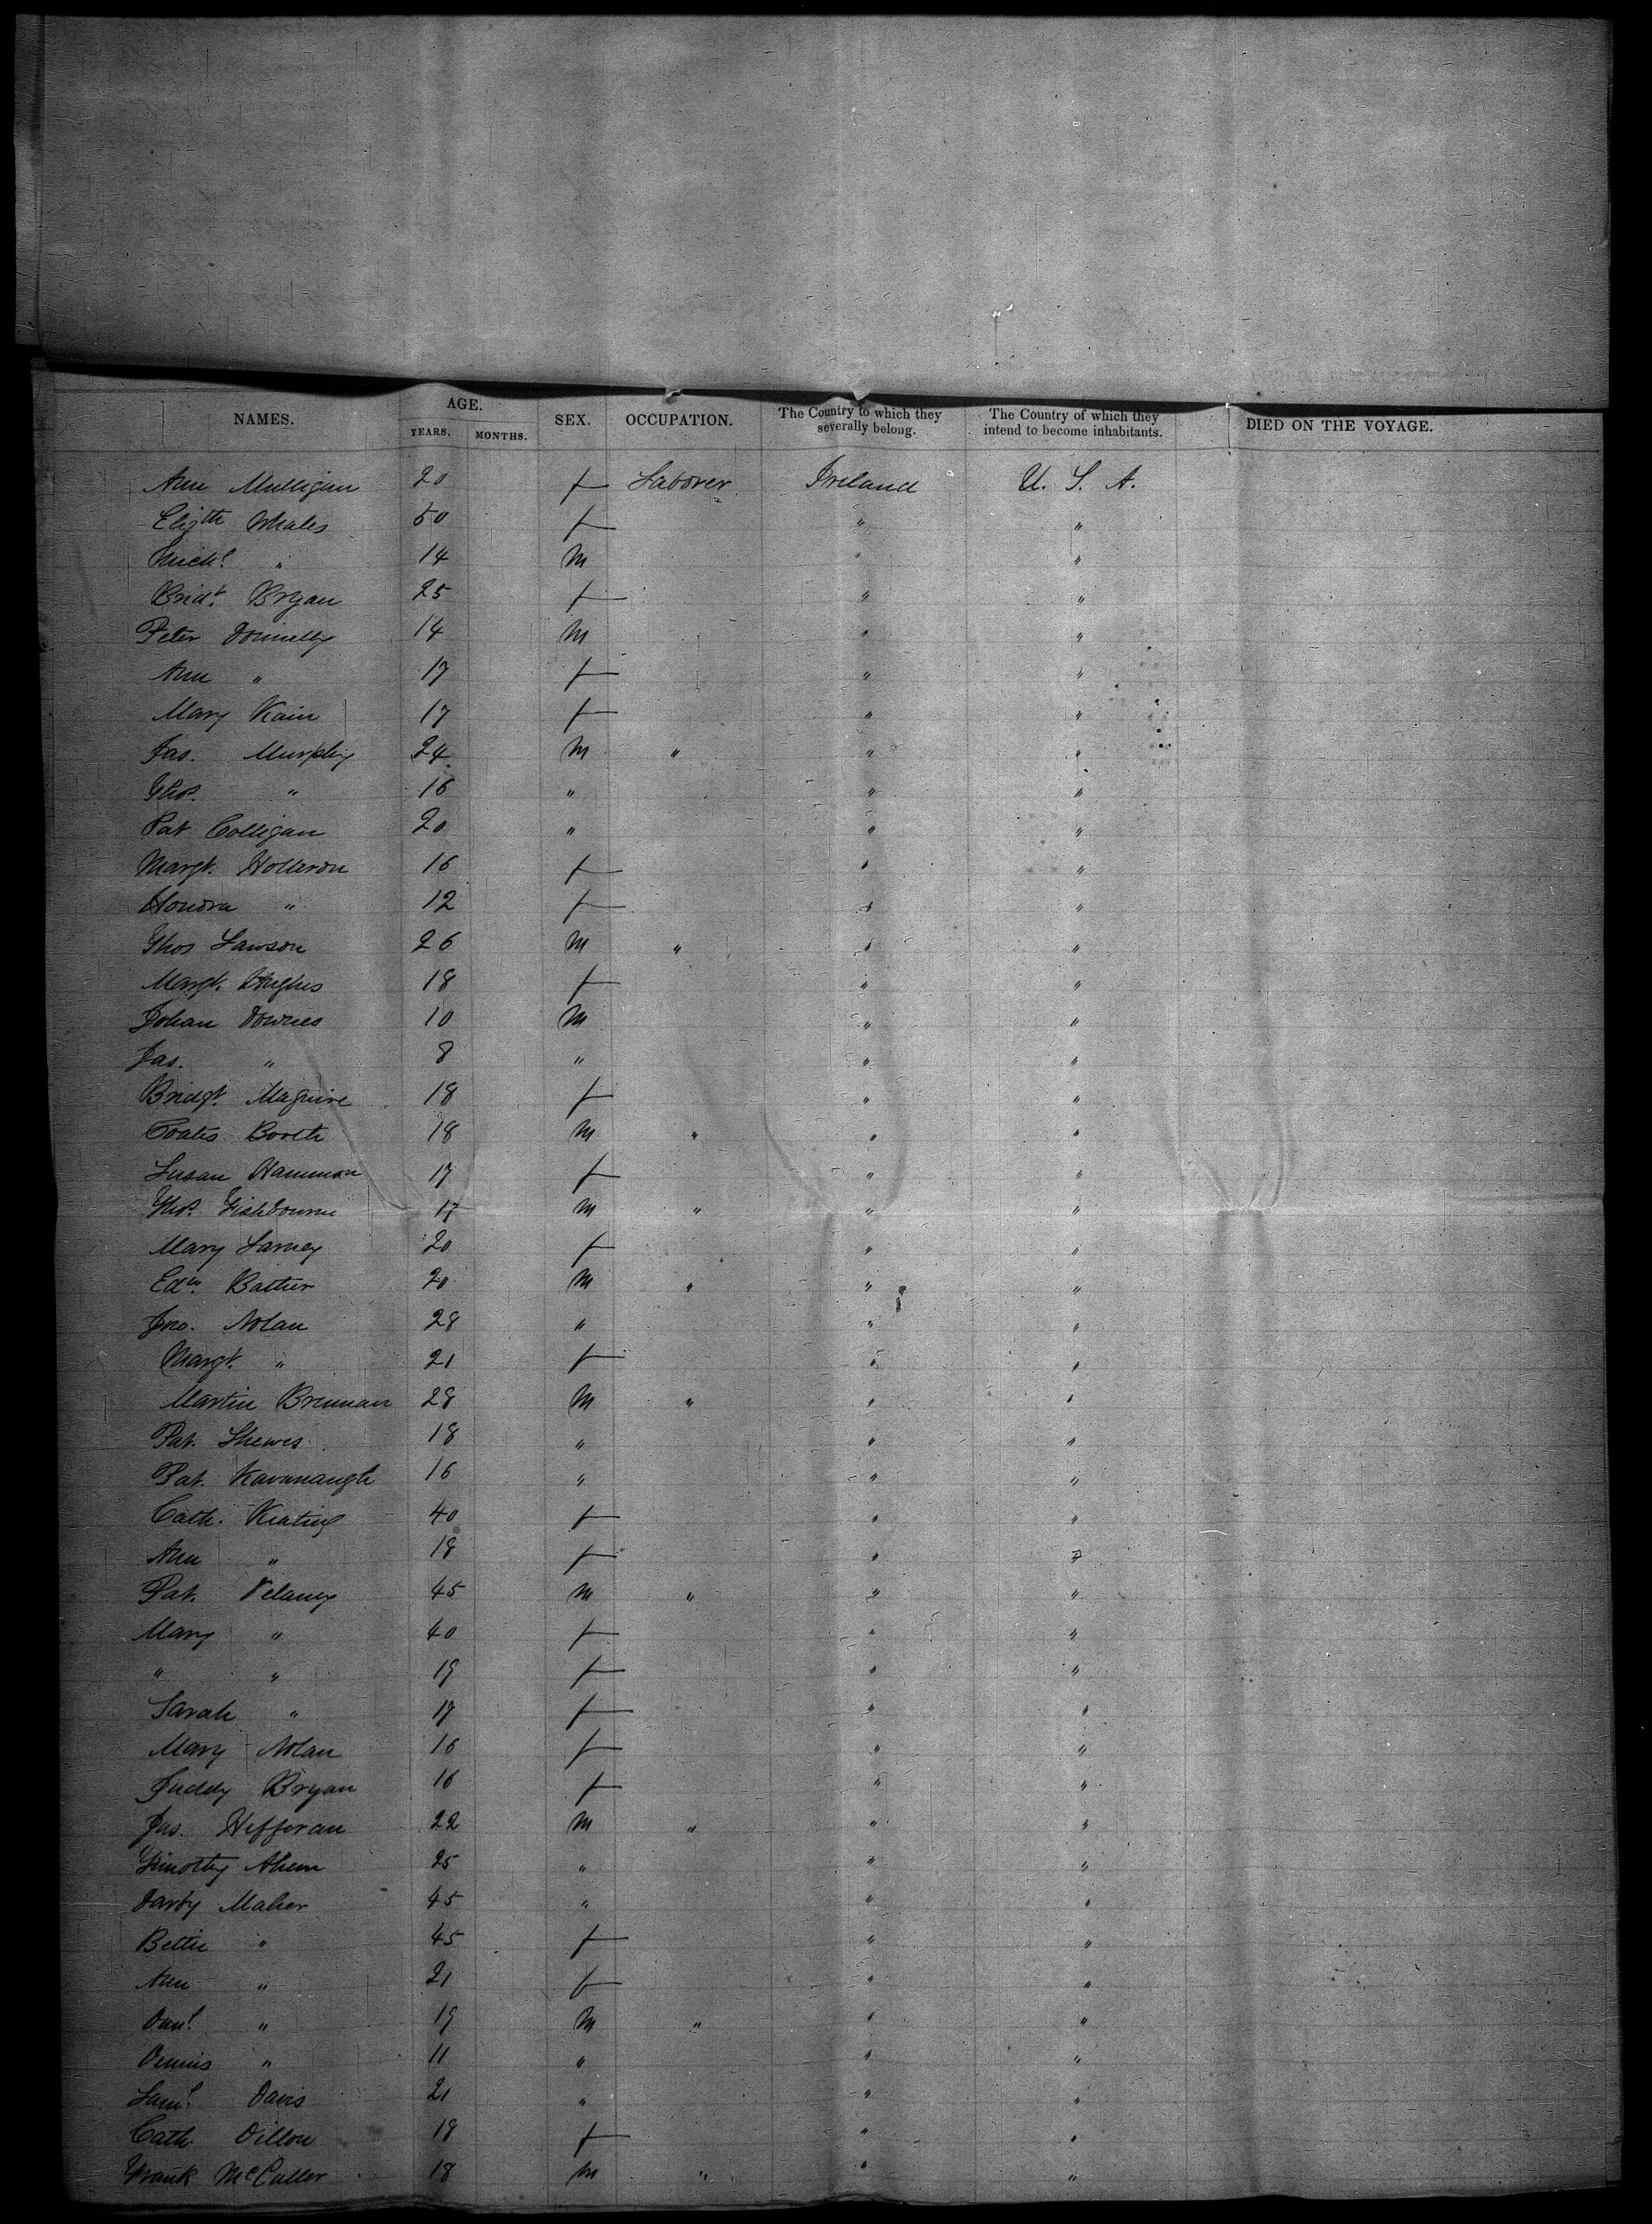 NAMES. AGE. YEARS. MONTHS. SEX. OCCUPATION. The Country to which they severally belong. The Country of which they intend to become inhabitants. DIED ON THE VOYAGE.
Ann Mulligan 20 f Laborer Ireland U. S. A.
Elizth Whales 50 f " "
Michl " 14 m " "
Bridt. Bryan 25 f " "
Peter Donnelly 14 m " "
Ann " 17 f " "
Mary Kain 17 f " "
Jas. Murphy 24 m " " "
Thos. " 16 " " "
Pat Colligan 20 " " "
Margt. Holleron 16 f " "
Honora " 12 f " "
Thos Lawson 26 m " " "
Margt. Hughes 18 f " "
Johan Downes 10 m " "
Jas. " 8 " " "
Bridgt. Maguire 18 f " "
Coates Booth 18 m " " "
Susan Hammon 17 f " "
Thos. Fishbourne 17 m " " "
Mary Larney 20 f " "
Edw. 20 m " " "
Jno. Nolan 28 " " "
Margt. " 21 f " "
Martin Brennan 28 m " " "
Pat. Shewes 18 " " "
Pat. Kavanaugh 16 " " "
Cath. Keating 40 f " "
Ann " 18 f " "
Pat. Delaney 45 m " " "
Mary " 40 f " "
" " 19 f " "
Sarah " 17 f " "
Mary Nolan 16 f " "
Juddy Bryan 16 f " "
Jas. Hefferan 22 m " " "
Timothy Ahern 25 " " "
Darby Maher 45 " " "
Bettie " 45 f " "
Ann " 21 f " "
Danl. " 19 m " " "
Dennis " 11 " " "
Saml. Davis 21 " " "
Cath. Dillon 18 f " "
Frank McCuller 18 m " " "